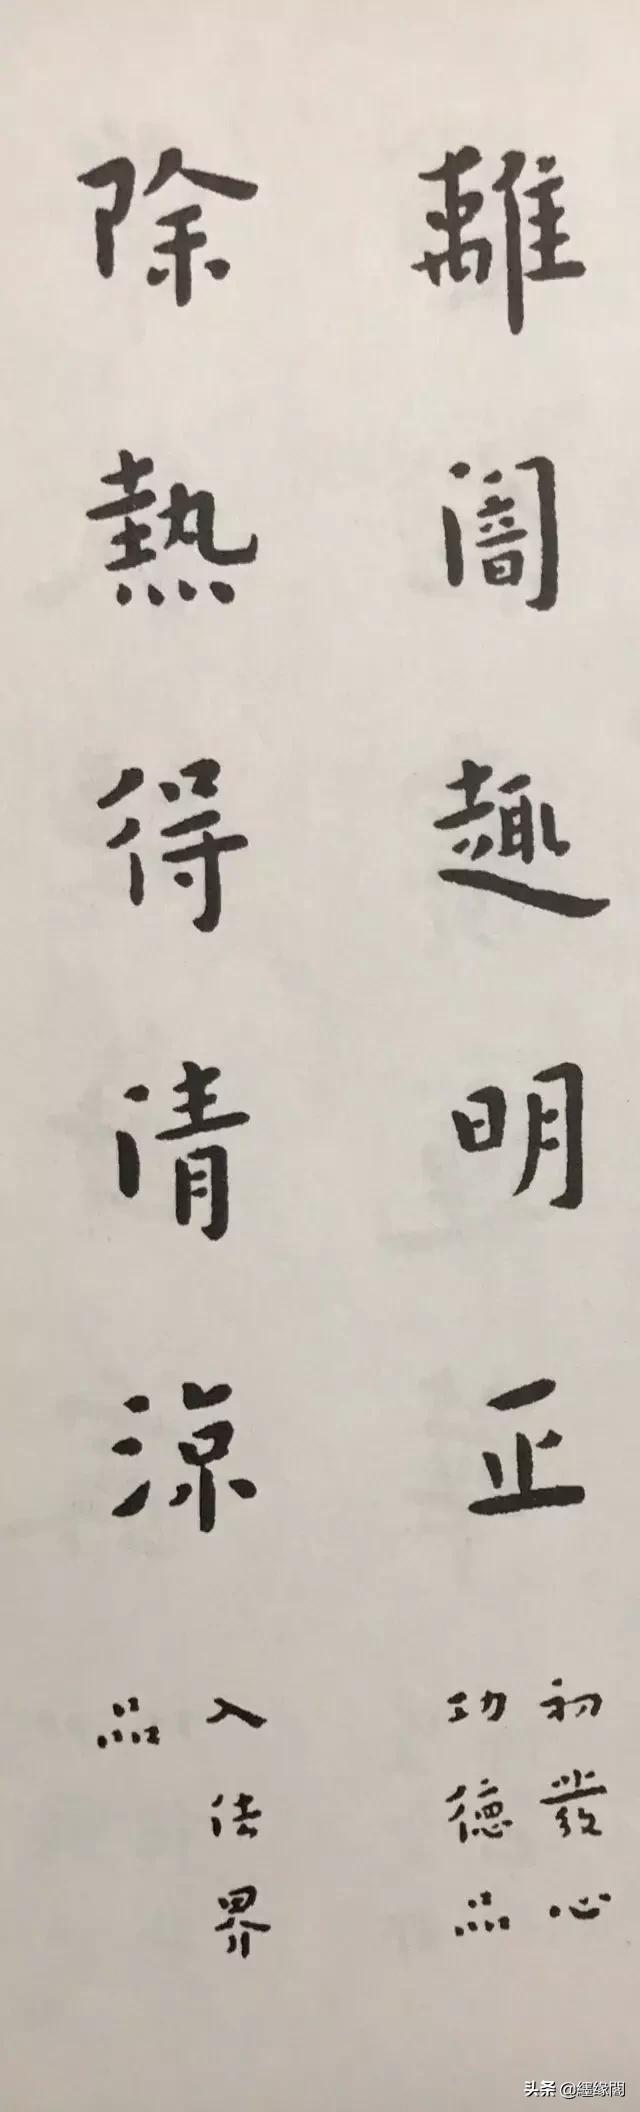 離闇趣明正
初發心
功德品
除熱得清涼
入法界
品
头条 @纆缘閣